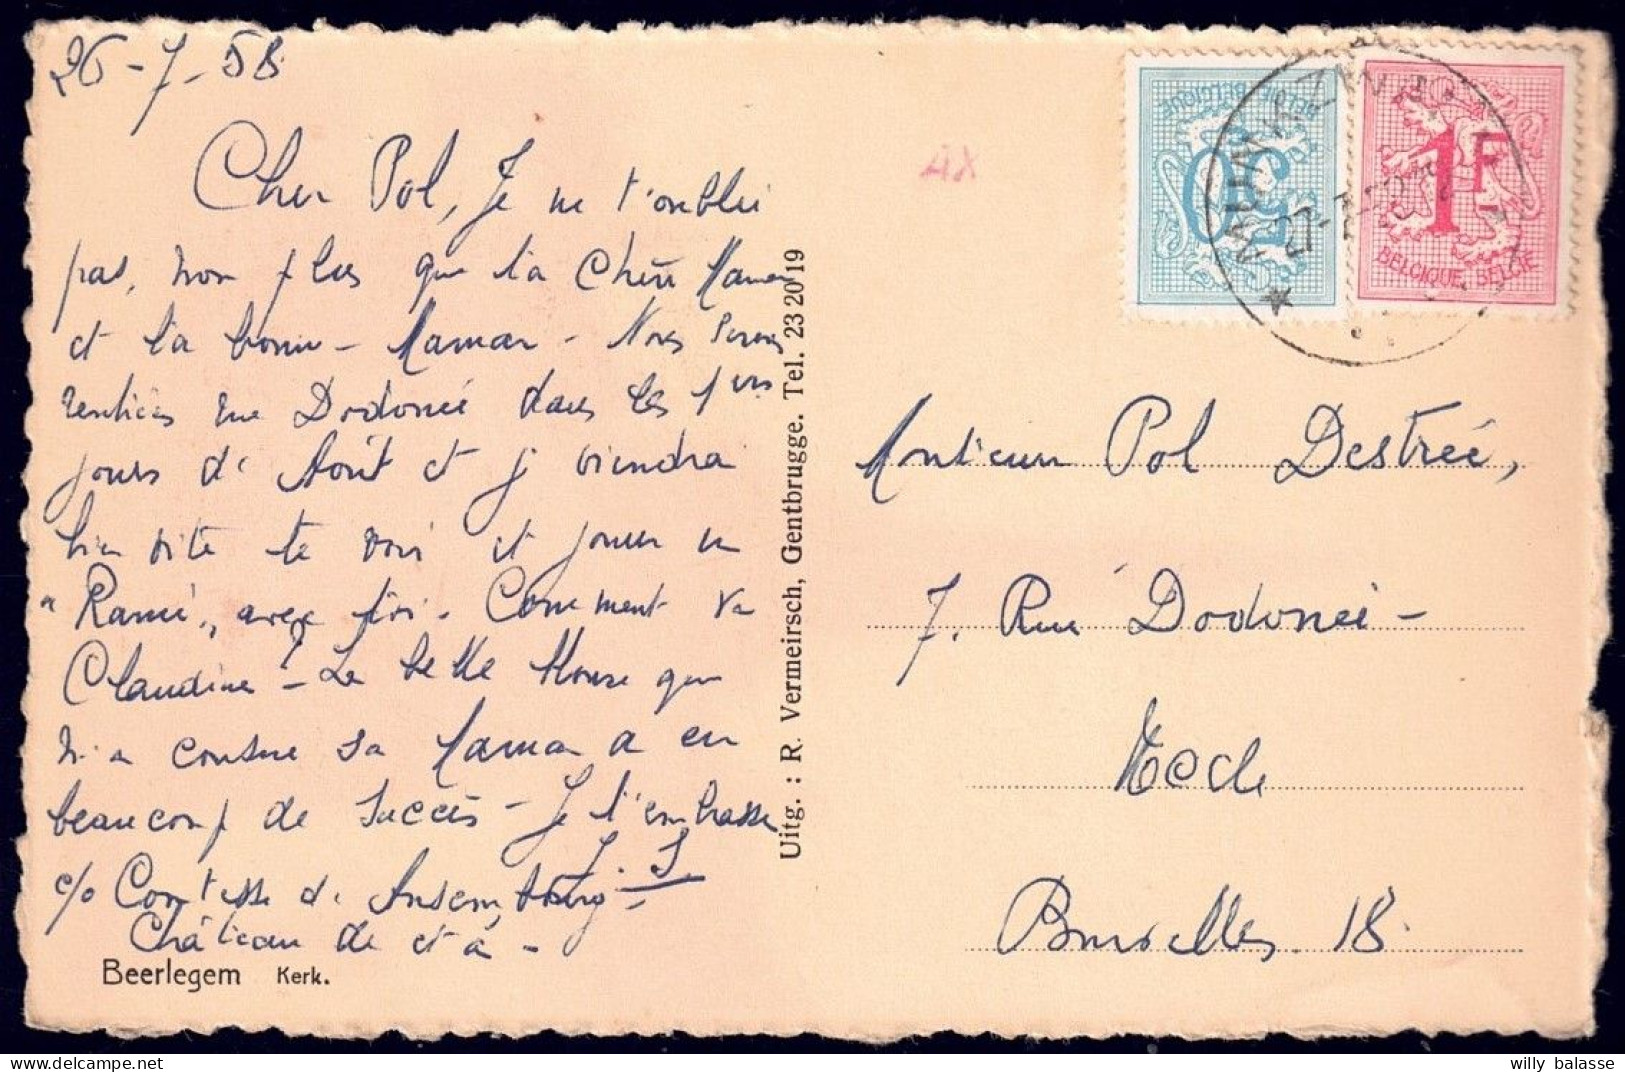 26-7-58
Cher Pol, Je ne t'oublie
pas, non plus que ta Chère Maman
et ta bonne-Maman - Nous serons
rentrées rue Dodonée dans les 1ers
jours d'Août et j viendrai
bien vite te voir et jouer un
"Rami" avec toi. Comment va
Claudine? - La belle blouse que
m'a cousue ta Maman a eu
beaucoup de succès - Je t'embrasse
J. S.
c/o Comtesse d'Ansembourg -
Château de et à -
Beerlegem Kerk.
Uitg. : R. Vermeirsch, Gentbrugge. Tel. 23 20 19
4X
50
BELGIE-BELGIQUE
1F
BELGIQUE-BELGIE
MUNKZWALM
27-7
Monsieur Pol Destrée,
7. Rue Dodonée -
Uccle
Bruxelles. 18.
willy balasse